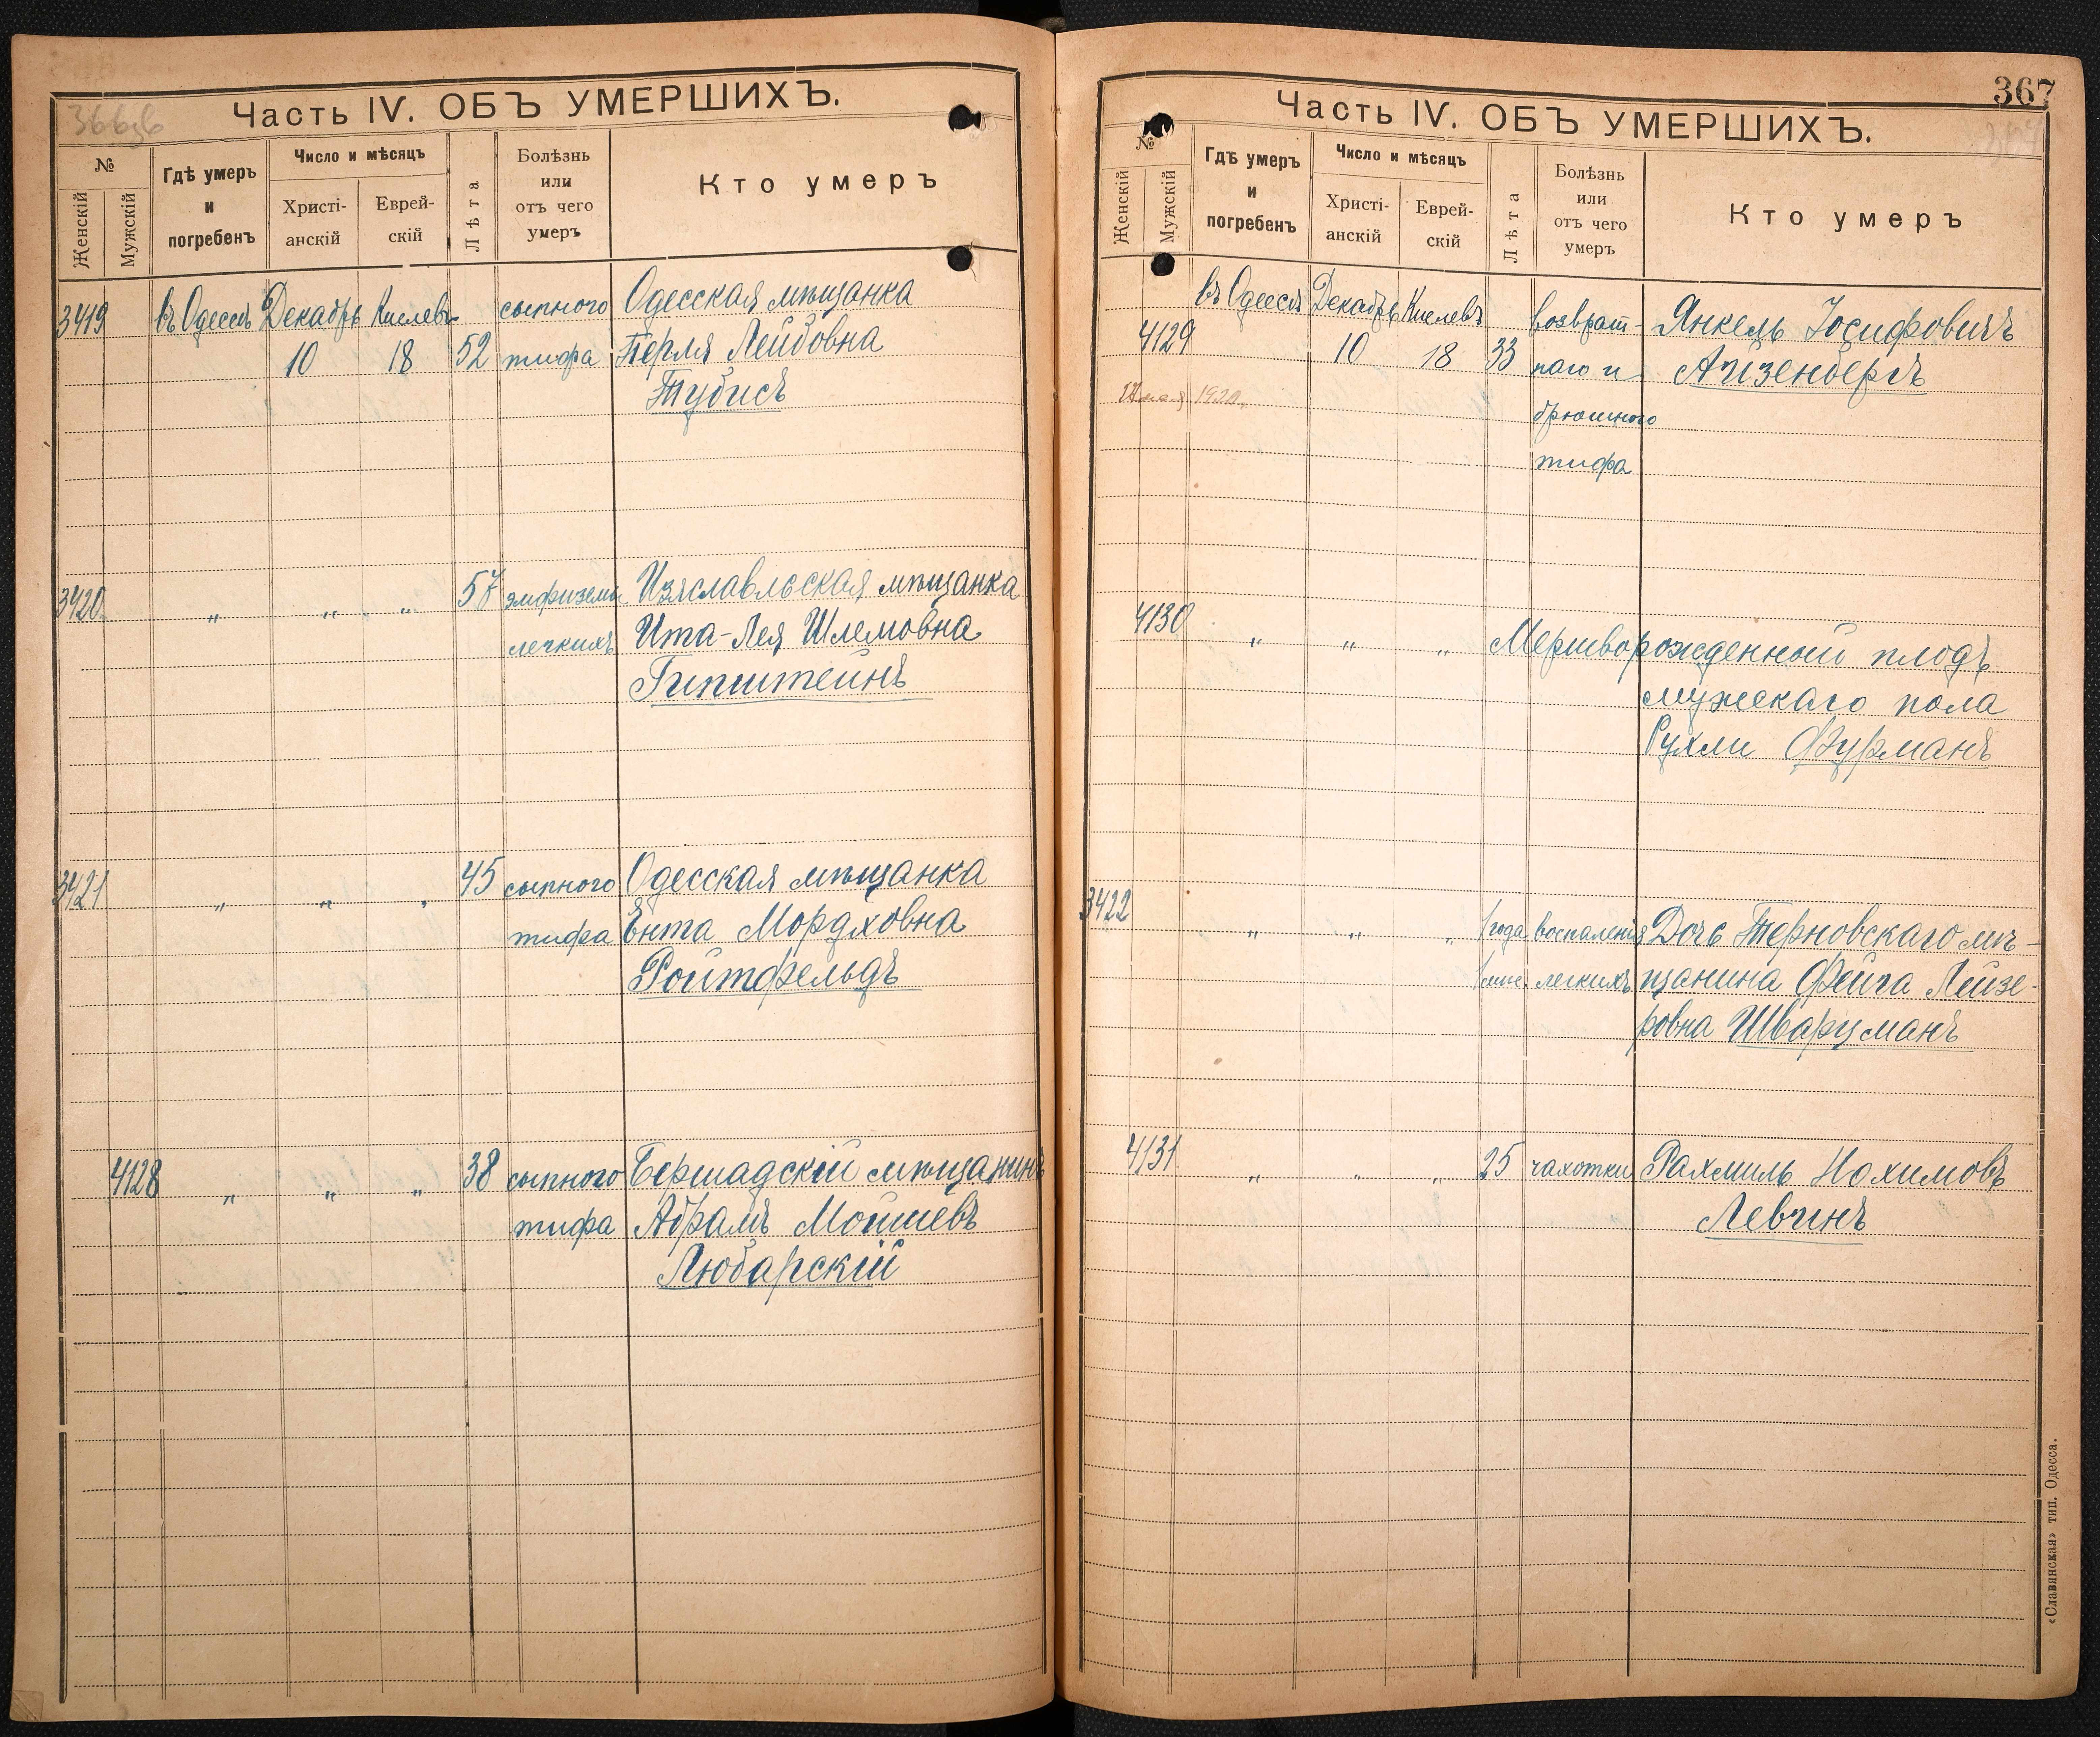 366об
Часть IV. ОБЪ УМЕРШИХЪ.
№
Женскій
Мужскій
Гдѣ умеръ
и
погребенъ
Число и мѣсяцъ
Христі-
анскій
Еврей-
скій
Лѣта
Болѣзнь
или
отъ чего
умеръ
Кто умеръ
3419 въ Одессѣ Декабрь Кислевъ сыпного Одесская мѣщанка
10 18 52 тифа Перля Лейбовна
Тубисъ
3420 " " " 57 эмфиземы Изяславльская мѣщанка
легкихъ Ита-Лея Шлемовна
Гипштейнъ
3421 " " " 45 сыпного Одесская мѣщанка
тифа Ента Мордховна
Ройтфельдъ
4128 " " " 38 сыпного Бершадскій мѣщанинъ
тифа Абрамъ Мошиевъ
Любарскій
367
Часть IV. ОБЪ УМЕРШИХЪ.
№
Женскій
Мужскій
Гдѣ умеръ
и
погребенъ
Число и мѣсяцъ
Христі-
анскій
Еврей-
скій
Лѣта
Болѣзнь
или
отъ чего
умеръ
Кто умеръ
въ Одессѣ Декабрь Кислевъ возврат- Янкель Іосифовичъ
4129 10 18 33 наго и Айзенбергъ
мая 1920 брюшного
тифа
4130 " " " Мертворожденный плодъ
мужскаго пола
Рухли Фурманъ
3422 " " " 1 года воспаленія Дочь Терновскаго мѣ-
1 мѣс. легкихъ щанина Фейга Лейзе-
ровна Шварцманъ
4131 " " " 25 чахотки Рахмиль Нохимовъ
Левинъ
«Славянская» тип. Одесса.